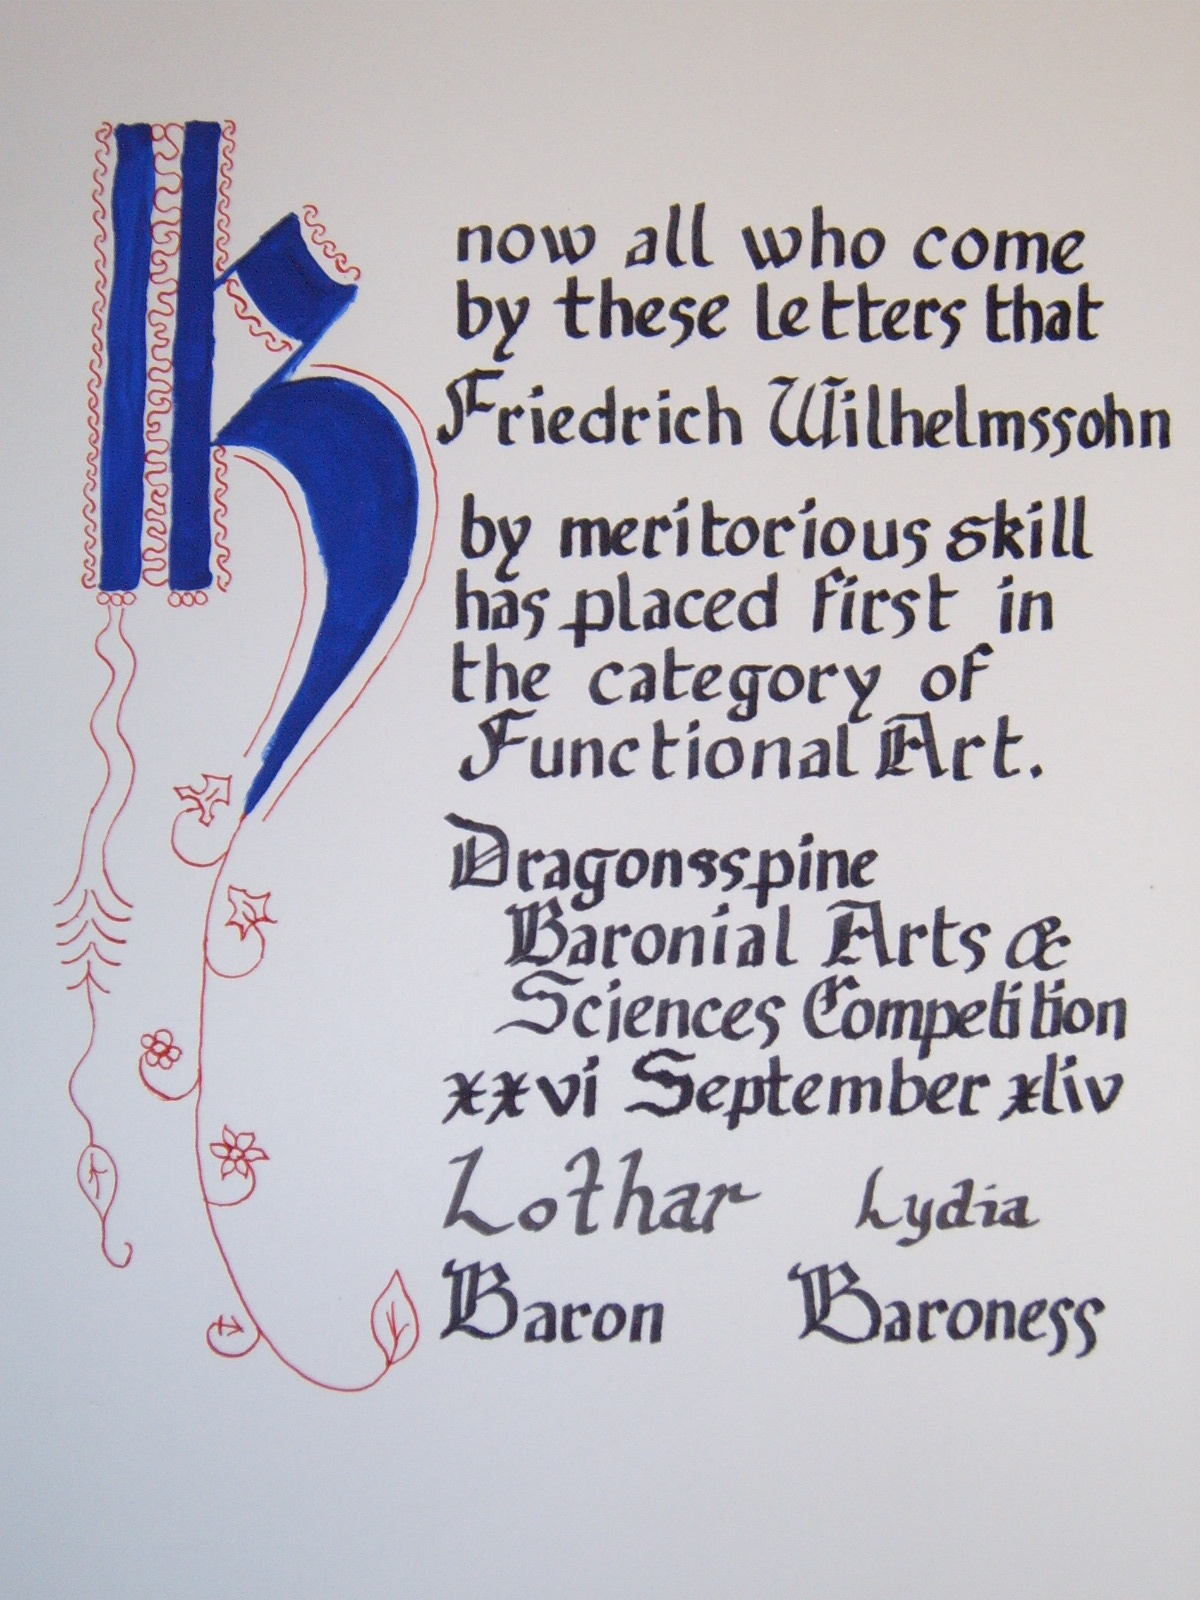 Know all who come
by these letters that
Friedrich Wilhelmssohn
by meritorious skill
has placed first in
the category of
Functional Art.
Dragonsspine
Baronial Arts &
Sciences Competition
xxvi September xliv
Lothar Lydia
Baron Baroness